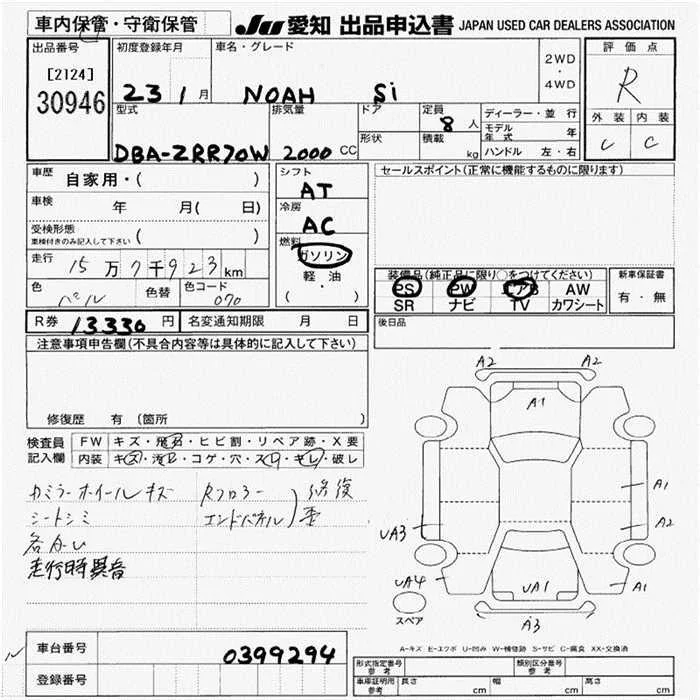 車内保管・守衛保管
JU 愛知 出品申込書 JAPAN USED CAR DEALERS ASSOCIATION
出品番号
[2124]
30946
初度登録年月
23 1 月
車名・グレード
NOAH Si
2WD
・
4WD
評価点
R
外装 内装
C C
型式
DBA-ZRR70W
排気量
2000 CC
ドア
形状
定員
8 人
積載
kg
ディーラー・並行
モデル年式 年
ハンドル 左・右
車歴
自家用・( )
車検 年 月( 日)
受検形態
車検付きのみ記入して下さい ( )
走行 15万7千923km
色 パール 色替 色コード 070
R券 13330 円 名変通知期限 月 日
シフト
AT
冷房
AC
燃料
ガソリン
軽・油
( ・ )
セールスポイント(正常に機能するものに限ります)
装備品(純正品に限り○をつけてください)
PS PW エアB AW
SR ナビ TV カワシート
新車保証書
有・無
後日品
注意事項申告欄(不具合内容等は具体的に記入して下さい)
修復歴 有 (箇所 )
検査員記入欄
FW キズ・飛石・ヒビ割・リペア跡・X要
内装 キズ・汚れ・コゲ・穴・スレ・キレ・破レ
カミラーホイールキズ
シートシミ
各かし
走行時異音
Rフロアー
エンドパネル
修復
歪
A2 A2
A1
A1
UA3 A2
UA4 UA1 A1
A3
スペア
A-キズ E-エクボ U-凹み W-補修跡 S-サビ C-腐食 XX-交換済
車台番号 0399294
登録番号
形式指定番号
参考
類別区分番号
参考
車庫証明用
参考
長さ cm 幅 cm 高さ cm